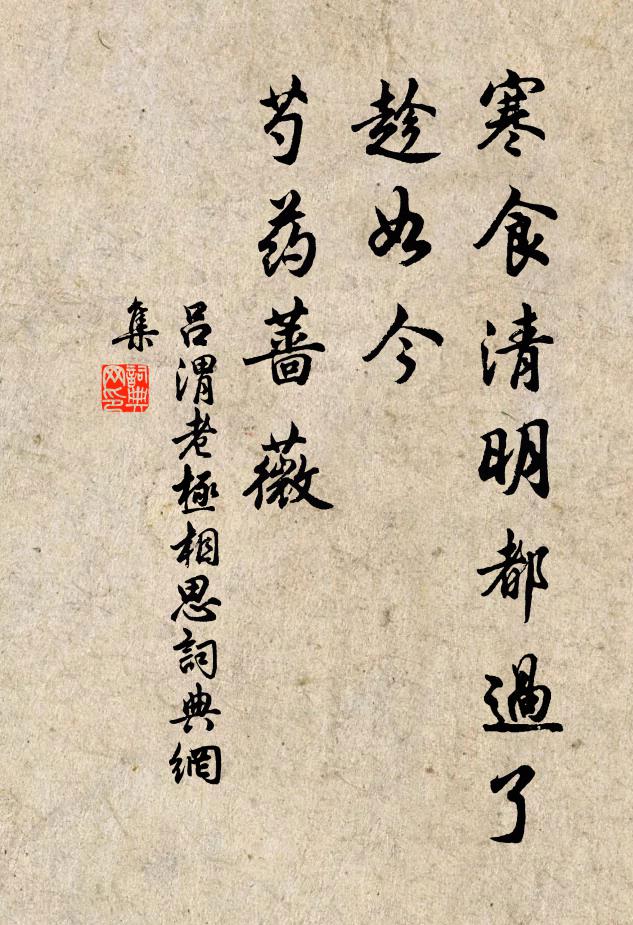 寒食清明都過了
趁如今
芍药蔷薇
呂渭老極相思詞典網
集
詞典
网印